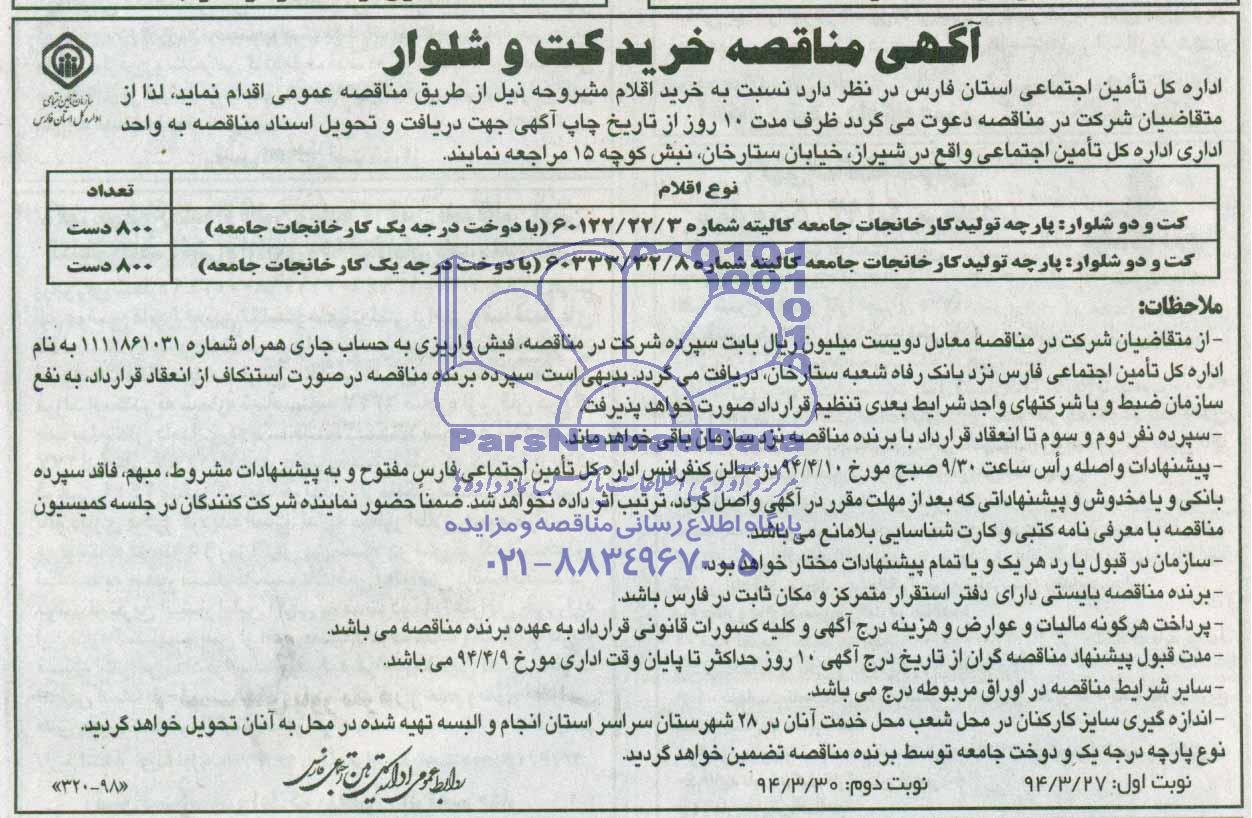 آگهی مناقصه خرید کت و شلوار
سازمان تأمین اجتماعی
اداره کل استان فارس
اداره کل تأمین اجتماعی استان فارس در نظر دارد نسبت به خرید اقلام مشروحه ذیل از طریق مناقصه عمومی اقدام نماید، لذا از
متقاضیان شرکت در مناقصه دعوت می گردد ظرف مدت ۱۰ روز از تاریخ چاپ آگهی جهت دریافت و تحویل اسناد مناقصه به واحد
اداری اداره کل تأمین اجتماعی واقع در شیراز، خیابان ستارخان، نبش کوچه ۱۵ مراجعه نمایند.
نوع اقلام تعداد
کت و دو شلوار: پارچه تولید کارخانجات جامعه کالیته شماره ۶۰۱۲۲/۲۲/۳ (با دوخت درجه یک کارخانجات جامعه) ۸۰۰ دست
کت و دو شلوار: پارچه تولید کارخانجات جامعه کالیته شماره ۶۰۳۳۳/۳۲/۸ (با دوخت درجه یک کارخانجات جامعه) ۸۰۰ دست
ملاحظات:
- از متقاضیان شرکت در مناقصه معادل دویست میلیون ریال بابت سپرده شرکت در مناقصه، فیش واریزی به حساب جاری همراه شماره ۱۱۱۱۸۶۱۰۳۱ به نام
اداره کل تأمین اجتماعی فارس نزد بانک رفاه شعبه ستارخان، دریافت می گردد. بدیهی است سپرده برنده مناقصه درصورت استنکاف از انعقاد قرارداد، به نفع
سازمان ضبط و با شرکتهای واجد شرایط بعدی تنظیم قرارداد صورت خواهد پذیرفت.
- سپرده نفر دوم و سوم تا انعقاد قرارداد با برنده مناقصه نزد سازمان باقی خواهد ماند.
- پیشنهادات واصله رأس ساعت ۹/۳۰ صبح مورخ ۹۴/۴/۱۰ در سالن کنفرانس اداره کل تأمین اجتماعی فارس مفتوح و به پیشنهادات مشروط، مبهم، فاقد سپرده
بانکی و یا مخدوش و پیشنهاداتی که بعد از مهلت مقرر در آگهی واصل گردد ترتیب اثر داده نخواهد شد. ضمناً حضور نماینده شرکت کنندگان در جلسه کمیسیون
مناقصه با معرفی نامه کتبی و کارت شناسایی بلامانع می باشد.
- سازمان در قبول یا رد هر یک و یا تمام پیشنهادات مختار خواهد بود.
- برنده مناقصه بایستی دارای دفتر استقرار متمرکز و مکان ثابت در فارس باشد.
- پرداخت هرگونه مالیات و عوارض و هزینه درج آگهی و کلیه کسورات قانونی قرارداد به عهده برنده مناقصه می باشد.
- مدت قبول پیشنهاد مناقصه گران از تاریخ درج آگهی ۱۰ روز حداکثر تا پایان وقت اداری مورخ ۹۴/۴/۹ می باشد.
- سایر شرایط مناقصه در اوراق مربوطه درج می باشد.
- اندازه گیری سایز کارکنان در محل شعب محل خدمت آنان در ۲۸ شهرستان سراسر استان انجام و البسه تهیه شده در محل به آنان تحویل خواهد گردید
نوع پارچه درجه یک و دوخت جامعه توسط برنده مناقصه تضمین خواهد گردید.
نوبت اول: ۹۴/۳/۲۷ نوبت دوم: ۹۴/۳/۳۰
روابط عمومی اداره کل تأمین اجتماعی فارس
«۳۲۰-۹۸»
ParsNamadData
مرکز فرآوری اطلاعات پارس نماد داده ها
پایگاه اطلاع رسانی مناقصه و مزایده
۰۲۱-۸۸۳۴۹۶۷۰-۵